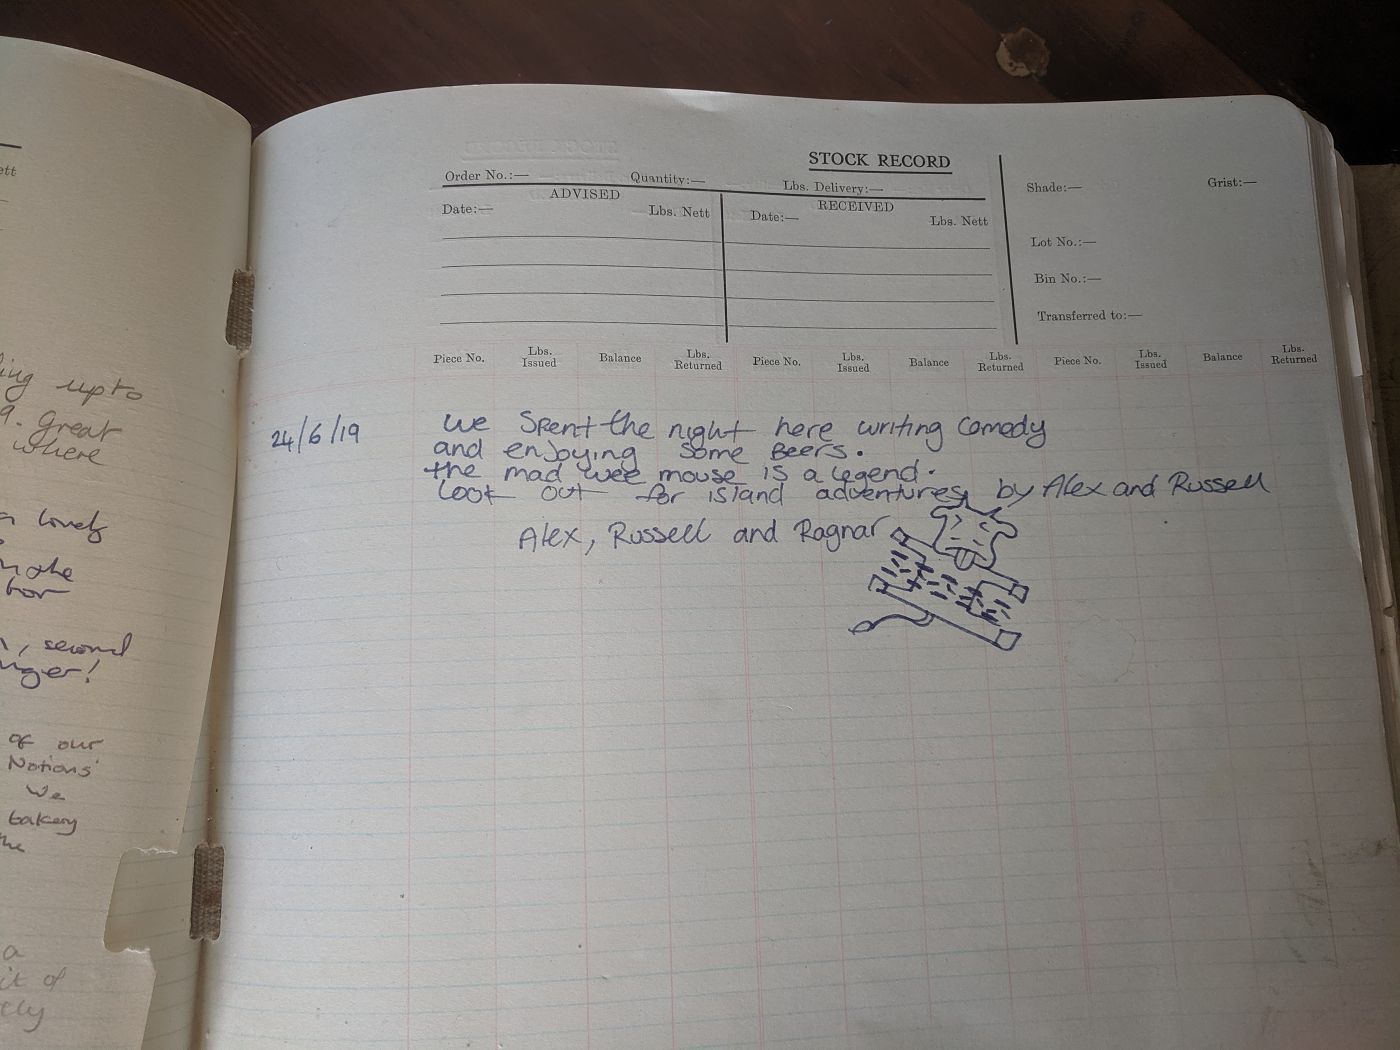 ett
ing up to
9. Great
where
a lovely
, second
nger!
of our
Notions'
We
bakery
the
a
it of
ely
STOCK RECORD
Order No.:— Quantity:— Lbs. Delivery:—
ADVISED RECEIVED
Date:— Lbs. Nett Date:— Lbs. Nett
Shade:— Grist:—
Lot No.:—
Bin No.:—
Transferred to:—
Piece No. Lbs. Issued Balance Lbs. Returned Piece No. Lbs. Issued Balance Lbs. Returned Piece No. Lbs. Issued Balance Lbs. Returned
24/6/19 We Spent the night here writing Comedy
and enjoying some Beers.
the mad wee mouse is a legend.
Look out for island adventures by Alex and Russell
Alex, Russell and Ragnar